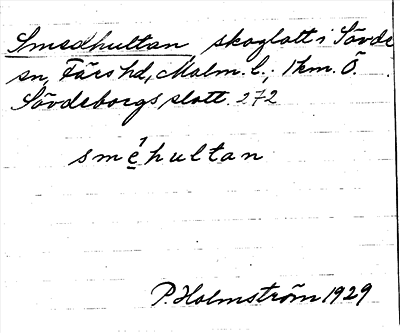 Smedhultan, skoglott i Sövde
sn, Färs hd, Malm. l.; 1 km. Ö.
Sövdeborgs slott. 272
sméhultan
P. Holmström 1929